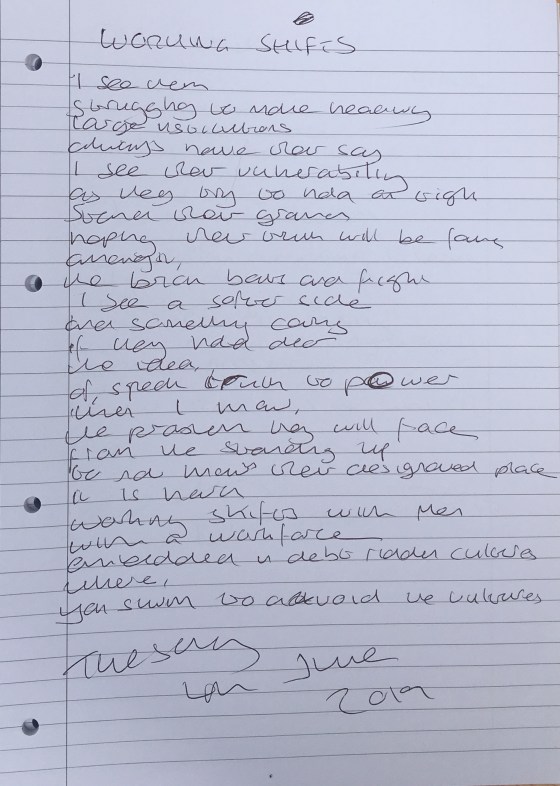 WORKING SHIFTS
I see them
struggling to make headway
large institutions
always have their say
I see their vulnerability
as they try to hold on tight
their
hoping their truth will be found
amongst,
the brick bats and fight
I see a softer side
and something caring
if they hold dear
the idea,
of, speak truth to power
when I know,
the problem they will face
from the standing up
to his designated place
it is hard
working shifts with them
with a workforce
embedded in debt ridden cultures
where,
you swim to avoid the vultures
Tuesday June
2019